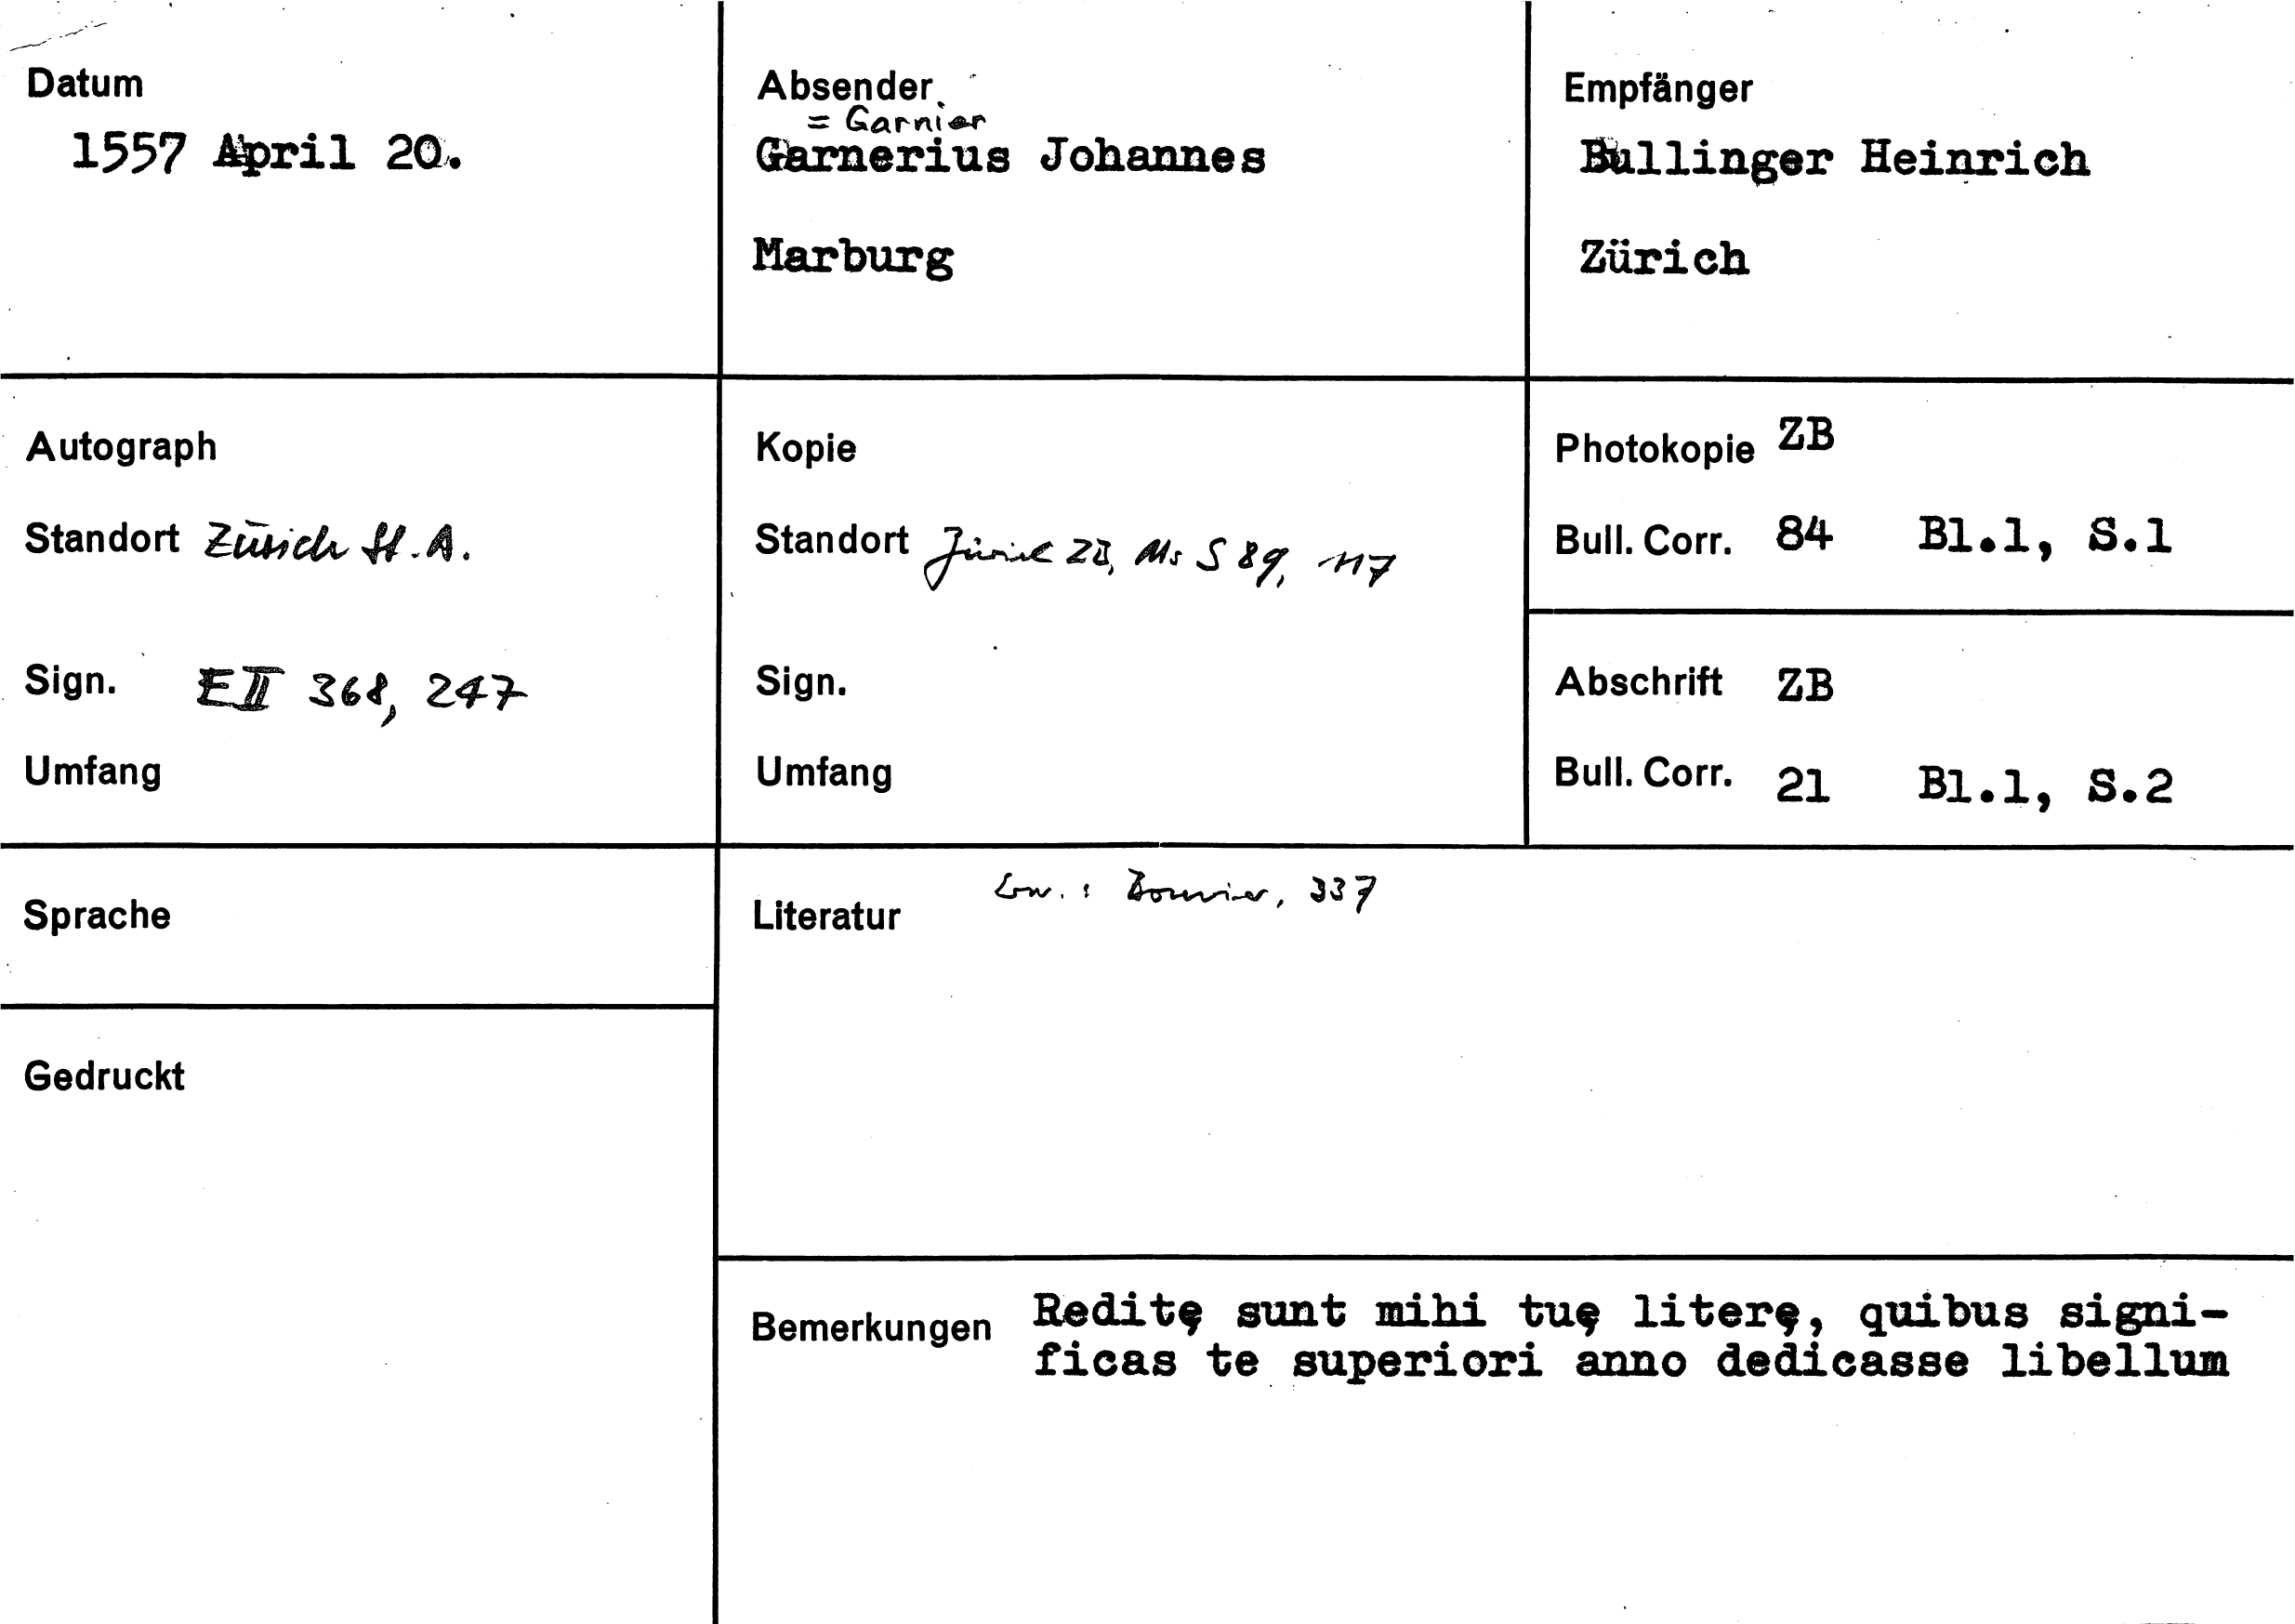 Datum
1557 April 20.
Absender
= Garnier
Garnerius Johannes
Marburg
Empfänger
Bullinger Heinrich
Zürich
Autograph
Standort Zürich St.A.
Sign. E II 368, 247
Umfang
Kopie
Standort Zürich ZB, Ms S 89, 117
Sign.
Umfang
Photokopie ZB
Bull. Corr. 84 Bl.1, S.1
Abschrift ZB
Bull. Corr. 21 Bl.1, S.2
Sprache
Gedruckt
Literatur Erw.: Bouvier, 337
Bemerkungen Reditę sunt mihi tuę literę, quibus signi-
ficas te superiori anno dedicasse libellum